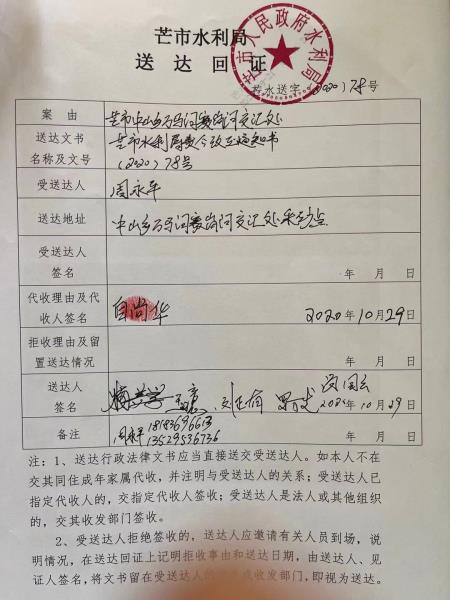 芒市水利局
送达回证
芒市人民政府水利局
芒水送字（2020）78号
案由
芒市中山乡万马河赛岗河交汇处
送达文书名称及文号
芒市水利局责令改正通知书
（2020）78号
受送达人
周永平
送达地址
中山乡万马河赛岗河交汇处采砂点
受送达人
签名
年 月 日
代收理由及代
收人签名
自尚华
2020年10月29日
拒收理由及留
置送达情况
年 月 日
送达人
签名
2020年10月29日
备注
周永平 18183696613
13529536736
年 月 日
注：1、送达行政法律文书应当直接送交受送达人。如本人不在
交其同住成年家属代收，并注明与受送达人的关系；受送达人已
指定代收人的，交指定代收人签收；受送达人是法人或其他组织
的，交其收发部门签收。
2、受送达人拒绝签收的，送达人应邀请有关人员到场，说
明情况，在送达回证上记明拒收事由和送达日期，由送达人、见
证人签名，将文书留在受送达人的 收发部门，即视为送达。